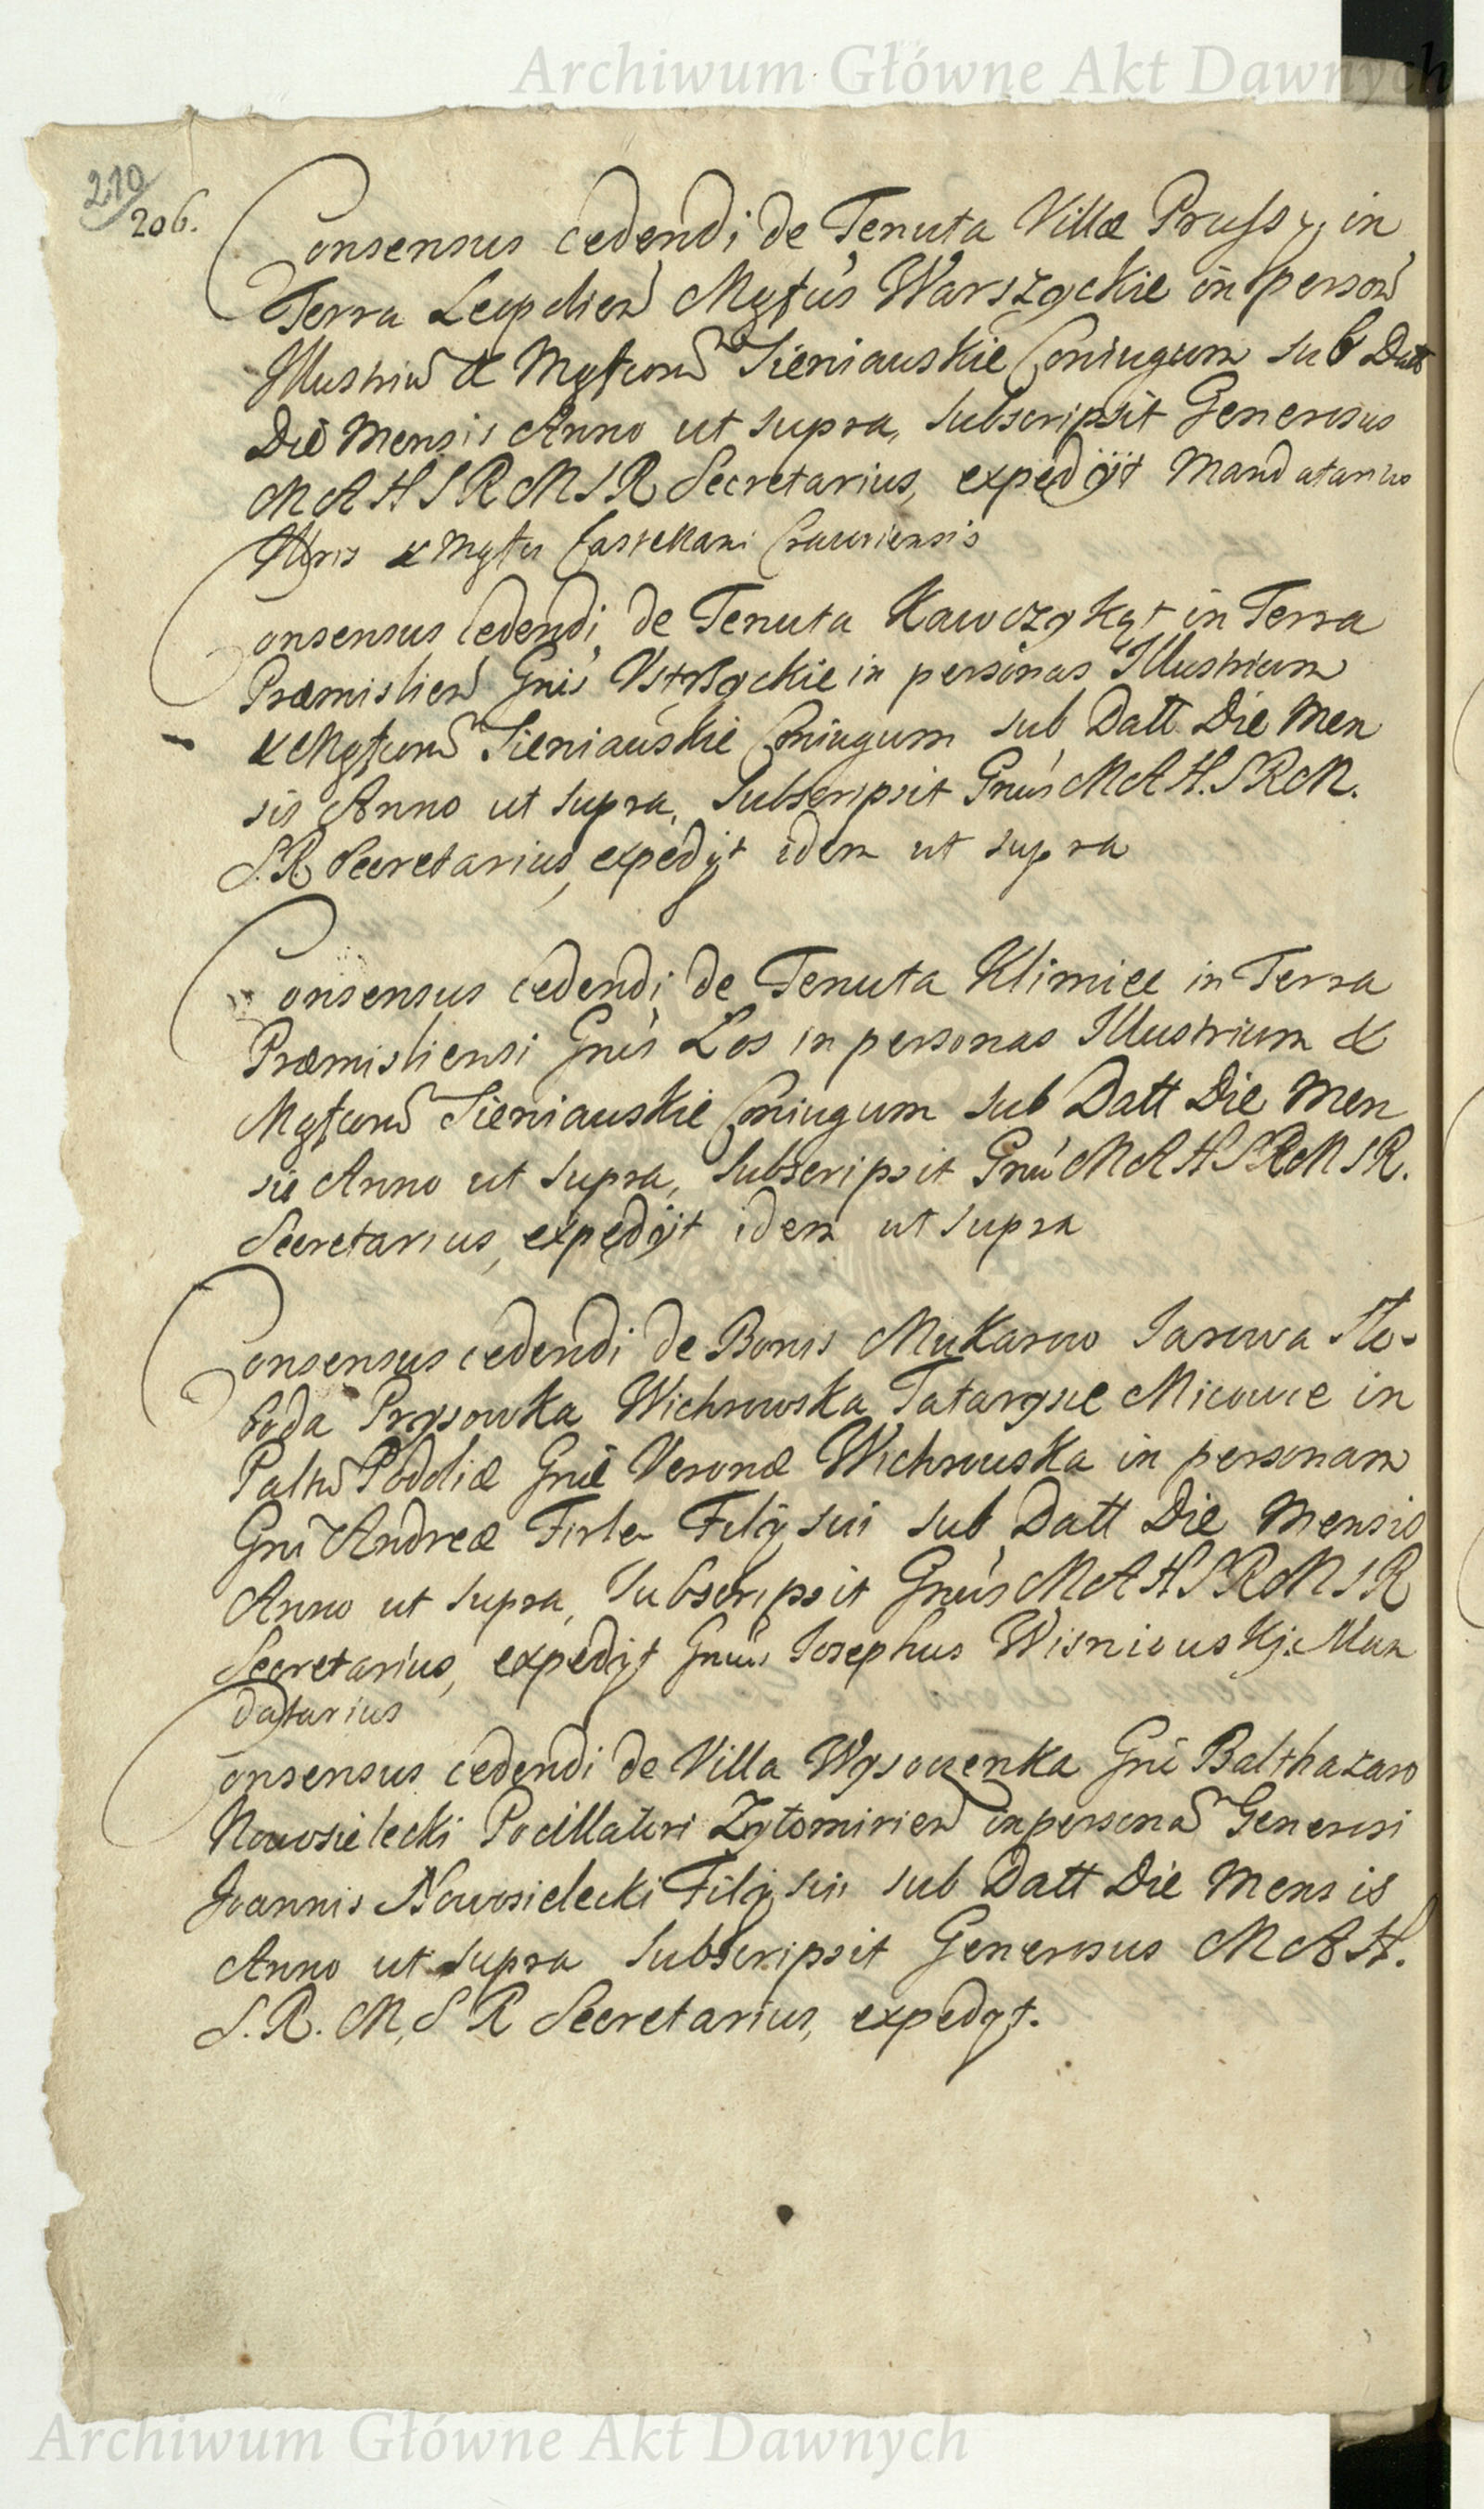 Archiwum Główne Akt Dawnych
210/
206.
Consensus cedendi de Tenuta Villæ Prussy in
Terra Leopolien Mgfus Warszyckie in person
Illustriu & Mgfcoru Sieniauskie Coniugum sub Datt
Die Mensis Anno ut supra, subscripsit Generosus
M A H S R M S R Secretarius, expedyt Mandatarius
Illris & Mgfci Castellani Cracoviensis
Consensus Cedendi de Tenuta Kawczy Kąt in Terra
Præmislien Gnis Ustrzyckie in personas Illustrium
& Mgfcoru Sieniauskie Coniugum sub Datt Die Men
sis Anno ut supra, Subscripsit Gnus M A H. S R M.
S. R. Secretarius, expedyt idem ut supra
Consensus cedendi de Tenuta Klimiec in Terra
Præmisliensi Gnis Los in personas Illustrium &
Mgfcoru Sieniauskie Coniugum sub Datt Die Men
sis Anno ut supra, Subscripsit Gnus M A H S R M S R.
Secretarius, expedyt idem ut supra
Consensus cedendi de Bonis Mukarow Jarowa Slo-
boda Prysowka Wichrowska Tatarysie Micowce in
Paltu Podoliæ Gnæ Veronæ Wichrouska in personam
Gni Andreæ Firle Filÿ sui sub Datt Die Mensis
Anno ut supra, Subscripsit Gnus M A H S R M S R
Secretarius, expedyt Gnus Josephus Wisniouskj. Man
datarius
Consensus cedendi de Villa Wysoczenka Gni Balthazaro
Nowosielecki Pocillatori Zytomirien in persona Generosi
Joannis Nowosielecki Filÿ sui sub Datt Die Mensis
Anno ut supra Subscripsit Generosus M A H.
S. R. M, S R Secretarius, expedyt.
Archiwum Główne Akt Dawnych